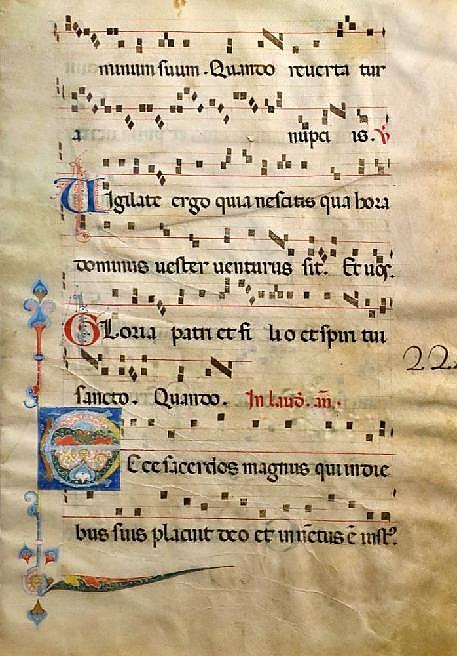 minum suum. Quando reverta tur
a nupci is. V
Vigilate ergo quia nescitis qua hora
dominus vester venturus sit. Et vos.
Gloria patri et fi lio et spiri tui
sancto. Quando. In laud. añ.
22.
Ecce sacerdos magnus qui in die
bus suis placuit deo et inventus ē iust9.